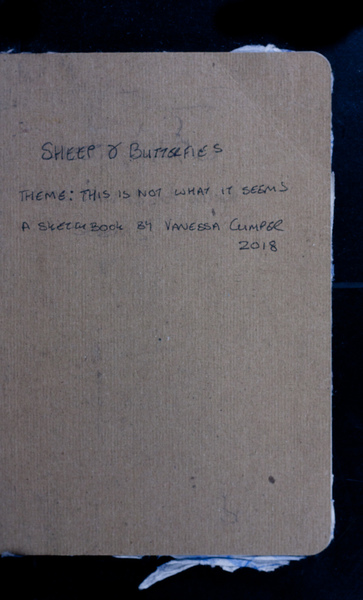 SHEEP & BUTTERFIES
THEME: THIS IS NOT WHAT IT SEEMS
A SKETCHBOOK BY VANESSA CUMPER
2018